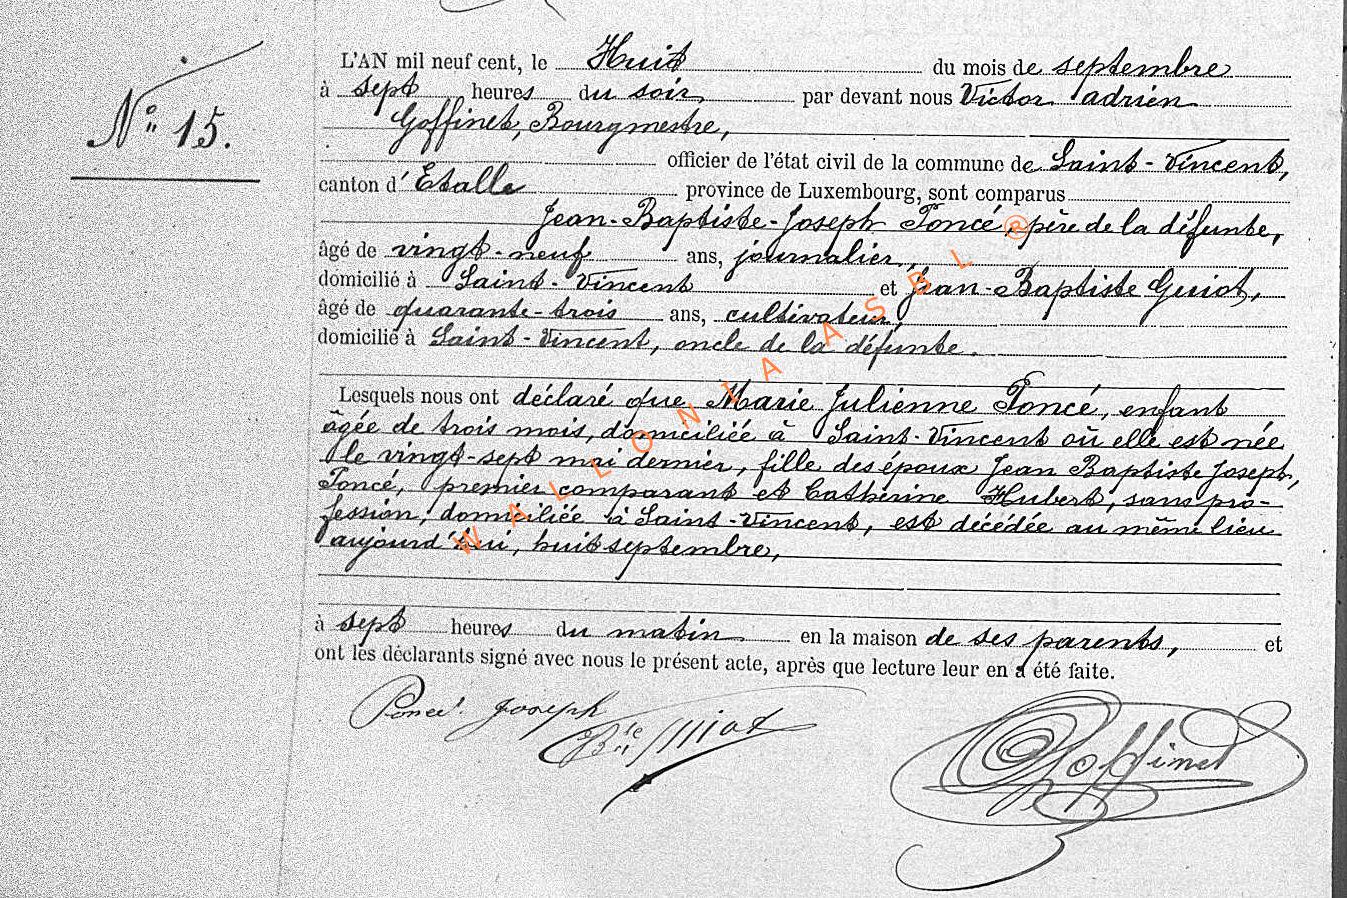 N° 15.
L'AN mil neuf cent, le Huit du mois de septembre
à sept heures du soir par devant nous Victor adrien
Goffinet, Bourgmestre,
officier de l'état civil de la commune de Saint-Vincent,
canton d'Etalle province de Luxembourg, sont comparus
Jean-Baptiste-Joseph Poncé, père de la défunte,
âgé de vingt-neuf ans, journalier,
domicilié à Saint-Vincent et Jean-Baptiste Guiot,
âgé de quarante-trois ans, cultivateur,
domicilié à Saint-Vincent, oncle de la défunte.
Lesquels nous ont déclaré que Marie Julienne Poncé, enfant
âgée de trois mois, domiciliée à Saint-Vincent où elle est née
le vingt-sept mai dernier, fille des époux Jean Baptiste Joseph,
Poncé, premier comparant et Catherine Hubert, sans pro-
fession, domiciliée à Saint-Vincent, est décédée au même lieu
aujourd'hui, huit septembre,
à sept heures du matin en la maison de ses parents, et
ont les déclarants signé avec nous le présent acte, après que lecture leur en a été faite.
Poncé Joseph
Bte Guiot
Goffinet
WALLONIA ASBL ®